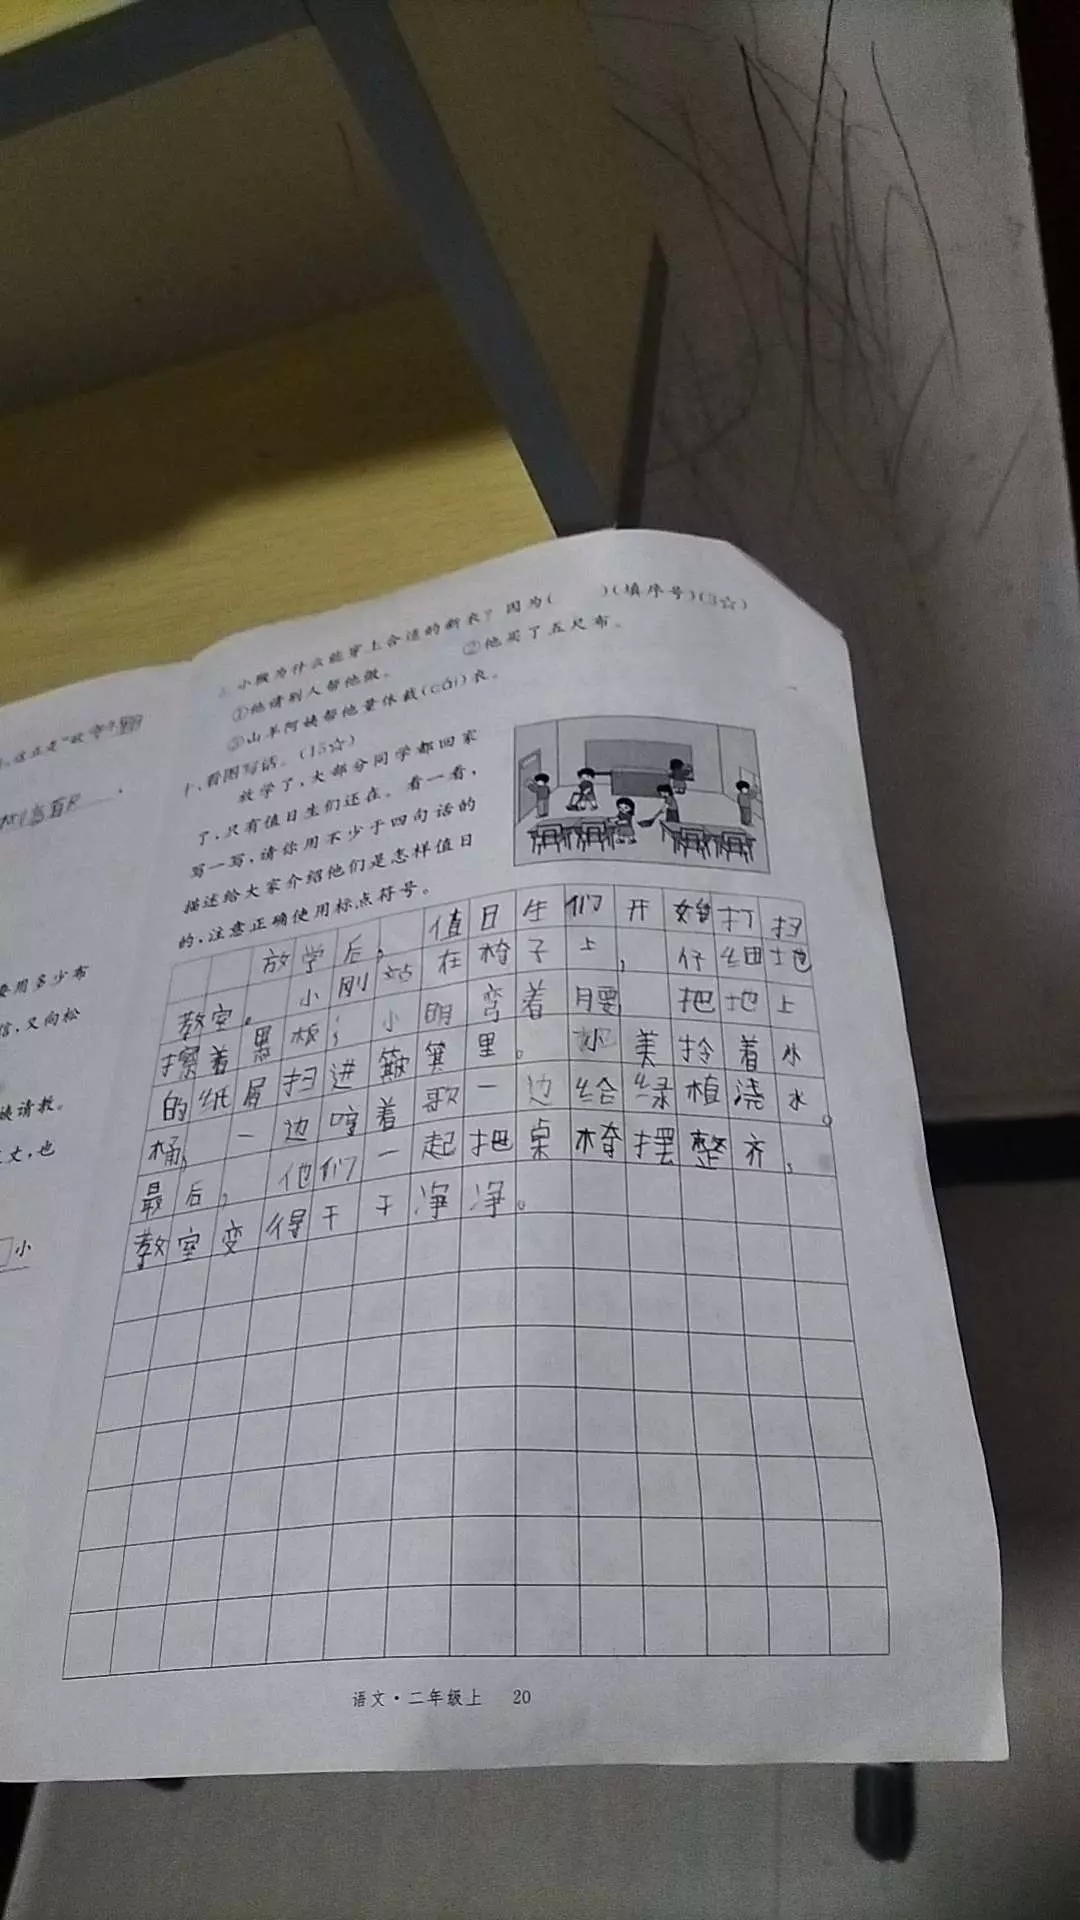 小猴为什么能穿上合适的新衣？因为(　　)(填序号)(3☆)
①他请别人帮他做。　②他买了五尺布。
③山羊阿姨帮他量体裁(cái)衣。
十、看图写话。(15☆)
放学了，大部分同学都回家
了，只有值日生们还在。看一看，
写一写，请你用不少于四句话的
描述给大家介绍他们是怎样值日
的，注意正确使用标点符号。
放学后，值日生们开始打扫
教室。小刚站在椅子上，仔细地
擦着黑板；小明弯着腰 把地上
的纸屑扫进簸箕里。小美拎着水
桶，一边哼着歌一边给绿植浇水。
最后，他们一起把桌椅摆整齐，
教室变得干干净净。
语文·二年级上 20
要用多少布
信，又向松
请教。
丈，也
小